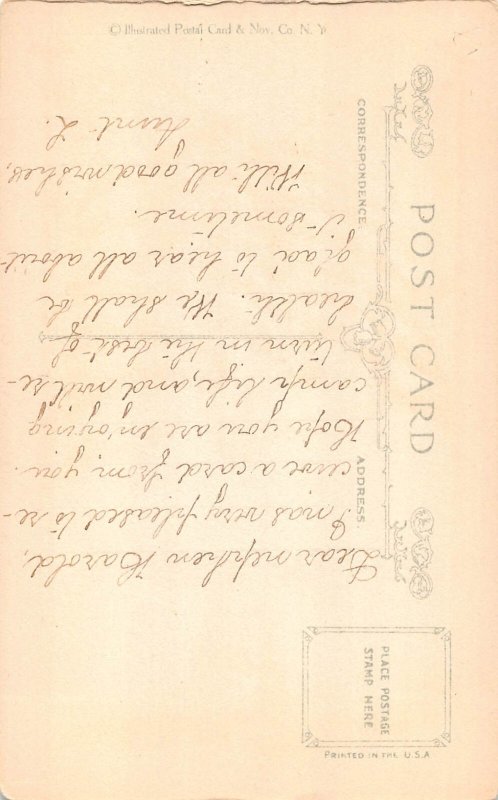 © Illustrated Postal Card & Nov. Co. N. Y
POST CARD
CORRESPONDENCE
ADDRESS.
PLACE POSTAGE
STAMP HERE
PRINTED IN THE U.S.A
Dear nephew Harold,
I was very pleased to re-
ceive a card from you.
Hope you are enjoying
camp life, and will re-
turn in the best of
health. We shall be
glad to hear all about
it sometime.
With all good wishes,
Aunt L.